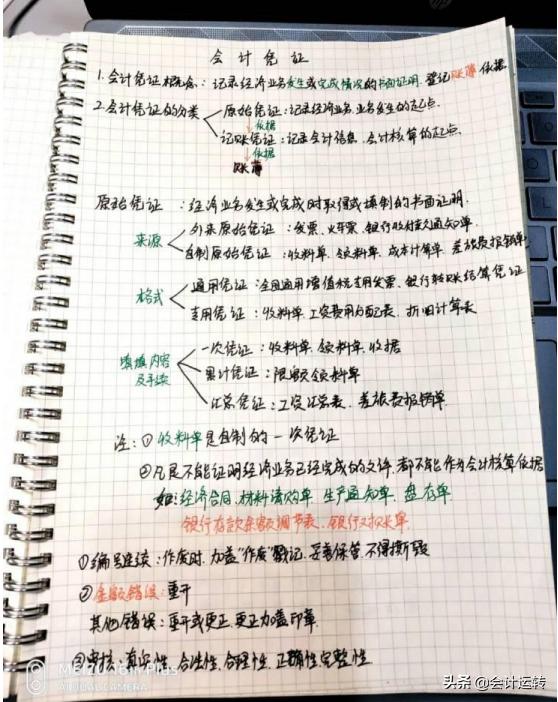 会计凭证
1.会计凭证概念：记录经济业务发生或完成情况的书面证明.登记账簿依据
2.会计凭证的分类
原始凭证：记录经济业务.业务发生的起点
依据
记账凭证：记录会计信息.会计核算的起点
依据
账簿
原始凭证：经济业务发生或完成时取得或填制的书面证明.
来源
外来原始凭证：发票.火车票.银行收付款通知单.
自制原始凭证：收料单.领料单.成本计算单.差旅费报销单
格式
通用凭证：全国通用增值税专用发票.银行转账结算凭证
专用凭证：收料单.工资费用分配表.折旧计算表
填填内容
及手续
一次凭证：收料单.领料单.收据
累计凭证：限额领料单
汇总凭证：工资汇总表.差旅费报销单
注：①收料单是自制的一次凭证
②凡是不能证明经济业务已经完成的文件.都不能作为会计核算依据
如：经济合同.材料请购单.生产通知单.盘存单
银行存款余额调节表.银行对账单.
①编号连续：作废时.加盖“作废”戳记.妥善保管.不得撕毁
②金额错误：重开
其他错误：重开或更正.更正加盖印章
③审核：真实性.合法性.合理性.正确性完整性.
MEIZU 16th Plus
AI DUAL CAMERA
头条 @会计运转